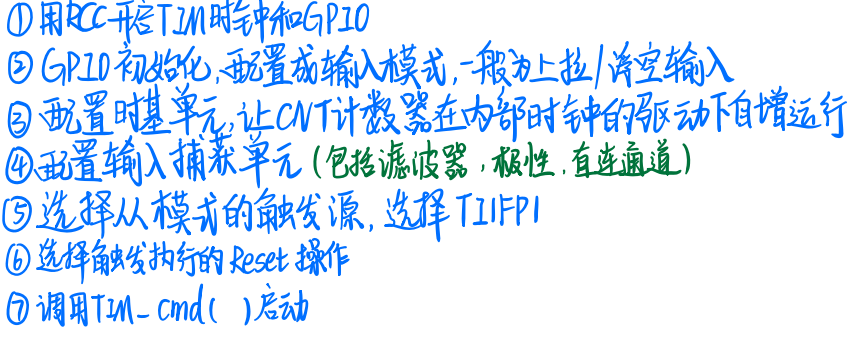 ①用RCC开启TIM时钟和GPIO
②GPIO初始化,配置成输入模式,一般为上拉/浮空输入
③配置时基单元,让CNT计数器在内部时钟的驱动下自增运行
④配置输入捕获单元(包括滤波器,极性,直连通道)
⑤选择从模式的触发源,选择TI1FP1
⑥选择触发执行的Reset操作
⑦调用TIM_cmd( )启动